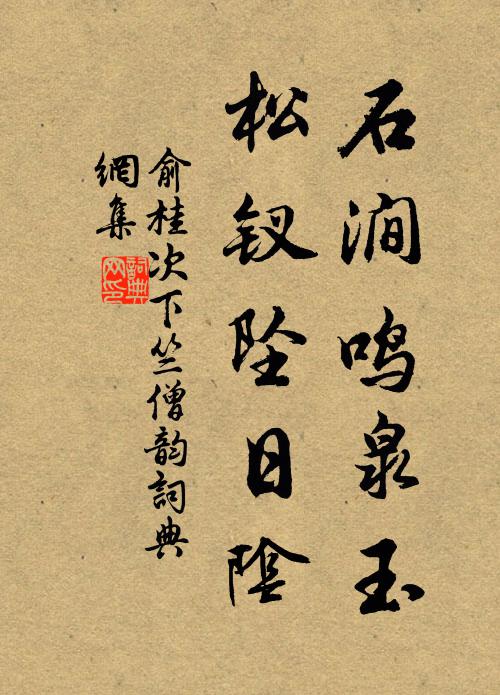 石涧鸣泉玉
松钗坠日陰
俞桂次下竺僧韵詞典
網集
詞典網印